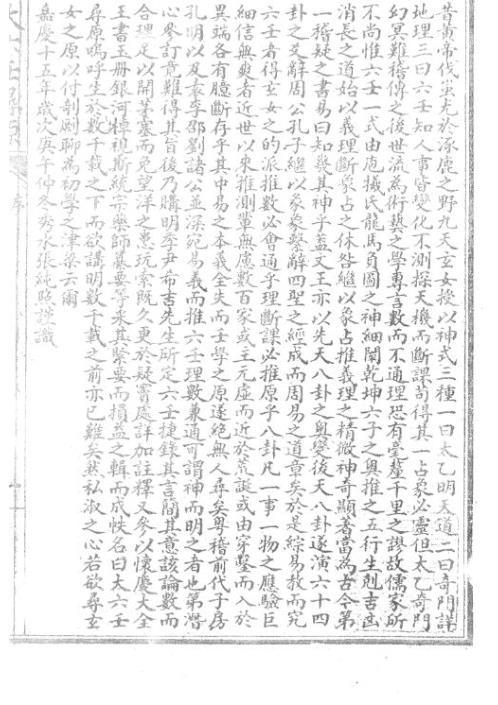 昔黃帝伐蚩尤於涿鹿之野九天玄女授以神式三種一曰太乙明天道二曰奇門詳
地理三曰六壬知人事皆變化不測探天機而斷課苟得其一占象必靈但太乙奇門
幻冥難稽傳之後世流為術藝之學專言數而不通理恐有毫釐千里之謬故儒家所
不尚惟六壬一式由庖犧氏龍馬負圖之神細闡乾坤六子之奧推之五行生剋吉凶
消長之道始以義理斷象占之休咎繼以象占推義理之精微神奇顯著當為古今第
一稽疑之書易曰知幾其神乎蓋文王亦以先天八卦之奧變後天八卦遂演六十四
卦之爻辭周公孔子繼以彖象繫辭四聖之經成而周易之道章矣於是綜易教而究
六壬者得玄女之的派推數必會通乎理斷課必推原乎八卦凡一事一物之應驗巨
細信無爽者近世以來推測輩無慮數百家或主元虛而近於荒誕或由穿鑿而入於
異端各有臆斷存乎其中易之本義全失而壬學之原遂絕無人尋矣粵稽前代子房
孔明以及袁李邵劉諸公並深宛易義而推六壬理數兼通可謂神而明之者也第潛
心參訂竟難得其旨後乃購明李尹希吉先生所定六壬捷錄其言簡其意該論數而
合理足以開茅塞而免望洋之患玩索既久更於疑竇處詳加註釋又參以懷慶大全
王書玉冊銀河棹視斯統宗藥師纂要等求其緊要而損益之輯而成帙名曰大六壬
尋原嗚呼生於數千載之下而欲講明數千載之前亦已難矣然私淑之心若欲尋玄
女之原以付剞劂聊為初學之津梁云爾
嘉慶十五年歲次庚午仲冬秀水張純照謹識
序